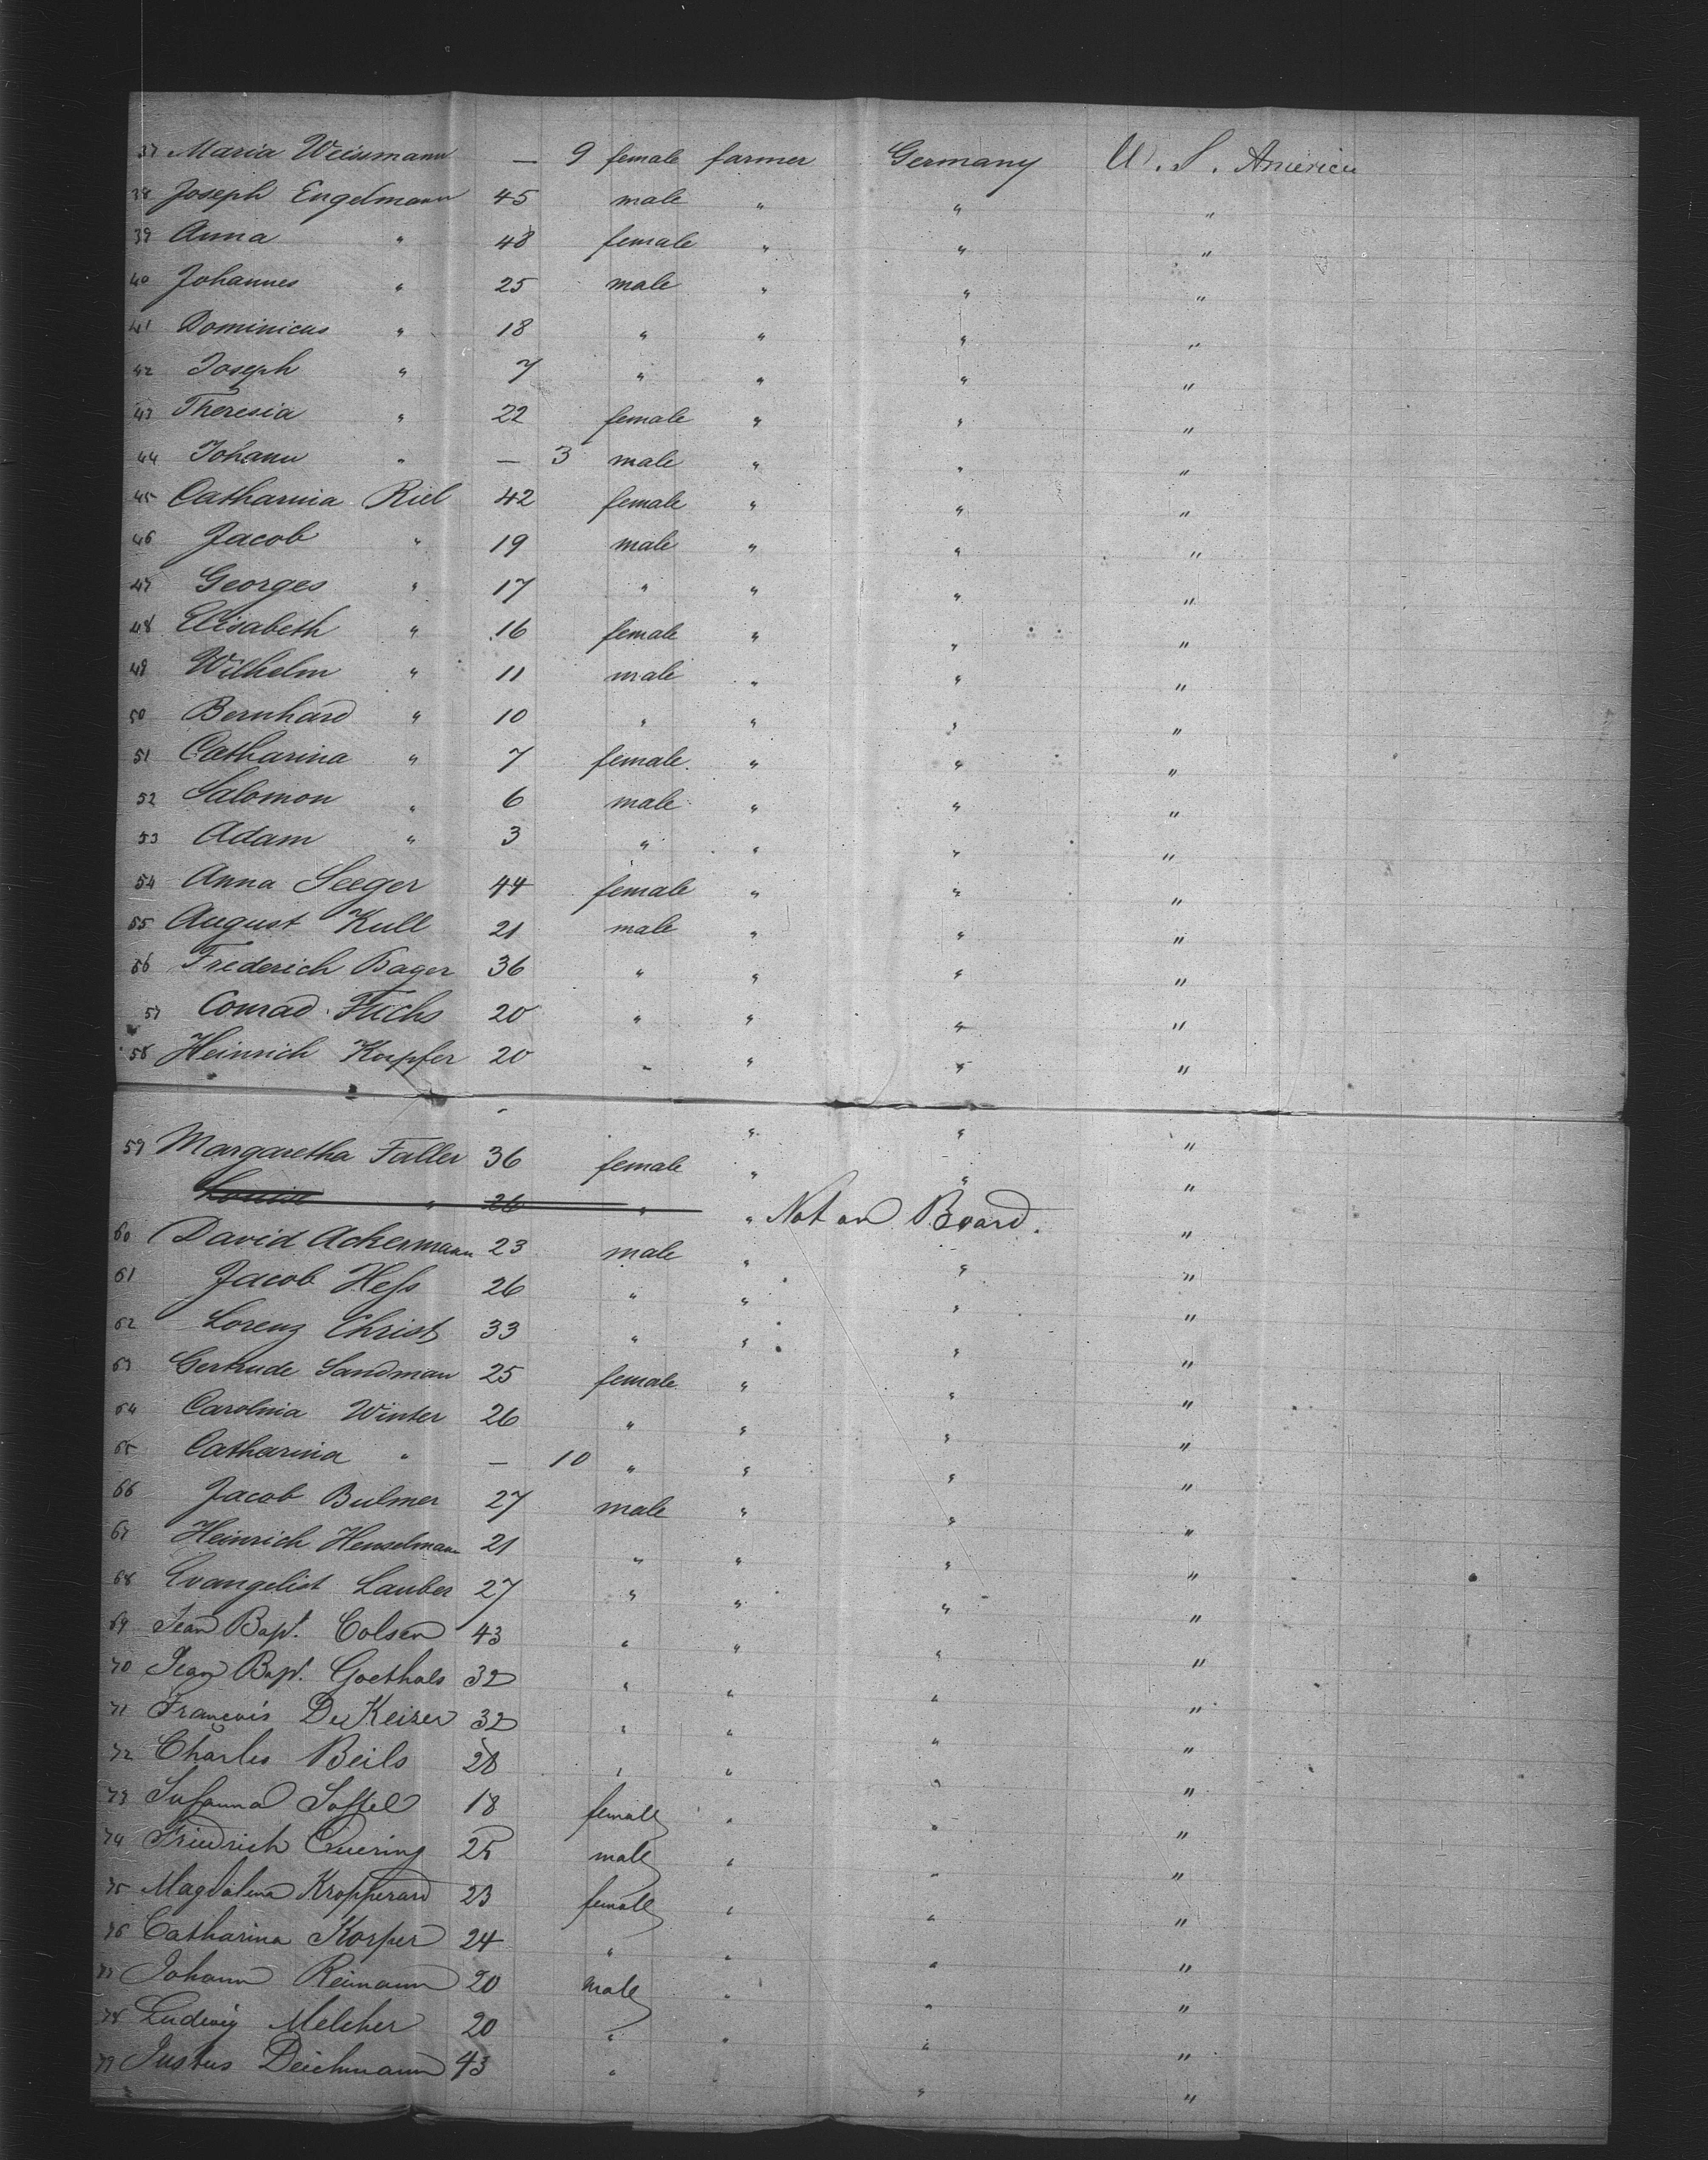 37 Maria Weismann — 9 female farmer Germany U. S. America
38 Joseph Engelmann 45 male " " "
39 Anna " 48 female " " "
40 Johannes " 25 male " " "
41 Dominicus " 18 " " " "
42 Joseph " 7 " " " "
43 Theresia " 22 female " " "
44 Johann " — 3 male " " "
45 Catharina Riel 42 female " " "
46 Jacob " 19 male " " "
47 Georges " 17 " " " "
48 Elisabeth " 16 female " " "
49 Wilhelm " 11 male " " "
50 Bernhard " 10 " " " "
51 Catharina " 7 female " " "
52 Salomon " 6 male " " "
53 Adam " 3 " " " "
54 Anna Seeger 44 female " " "
55 August Kull 21 male " " "
56 Frederich Bager 36 " " " "
57 Conrad Fuchs 20 " " " "
58 Heinrich Kupfer 20 " " " "
" " "
59 Margaretha Faller 36 female " " "
Louise " 26 " " Not on Board. "
60 David Ackermann 23 male " " "
61 Jacob Heſs 26 " " " "
62 Lorenz Christ 33 " " " "
63 Gertrude Sandman 25 female " " "
64 Carolina Winter 26 " " " "
65 Catharina " — 10 " " " "
66 Jacob Bulmer 27 male " " "
67 Heinrich Henselmann 21 " " " "
68 Evangelist Lauber 27 " " " "
69 Jean Bapt. Colsen 43 " " " "
70 Jean Bapt. Goethals 32 " " " "
71 François De Keizer 32 " " " "
72 Charles Beils 28 " " " "
73 Suſanna 18 female " " "
74 Friedrich Quering 25 male " " "
75 Magdalena Kropperard 23 female " " "
76 Catharina Korper 24 " " " "
77 Johann Reimann 20 male " " "
78 Ludwig Melcher 20 " " " "
79 Justus Deichmann 43 " " "